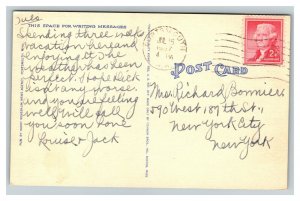 Tues
THIS SPACE FOR WRITING MESSAGES
Spending three wks
vacation here and
enjoying it. The
weather has been
perfect. Hope Dick
isn't any worse
and you are feeling
well. Will call
you soon. Love
Louise & Jack
1957
PM
2¢
POST CARD
Mrs. Richard Bonniers
590 West 187th St
New York City
New York